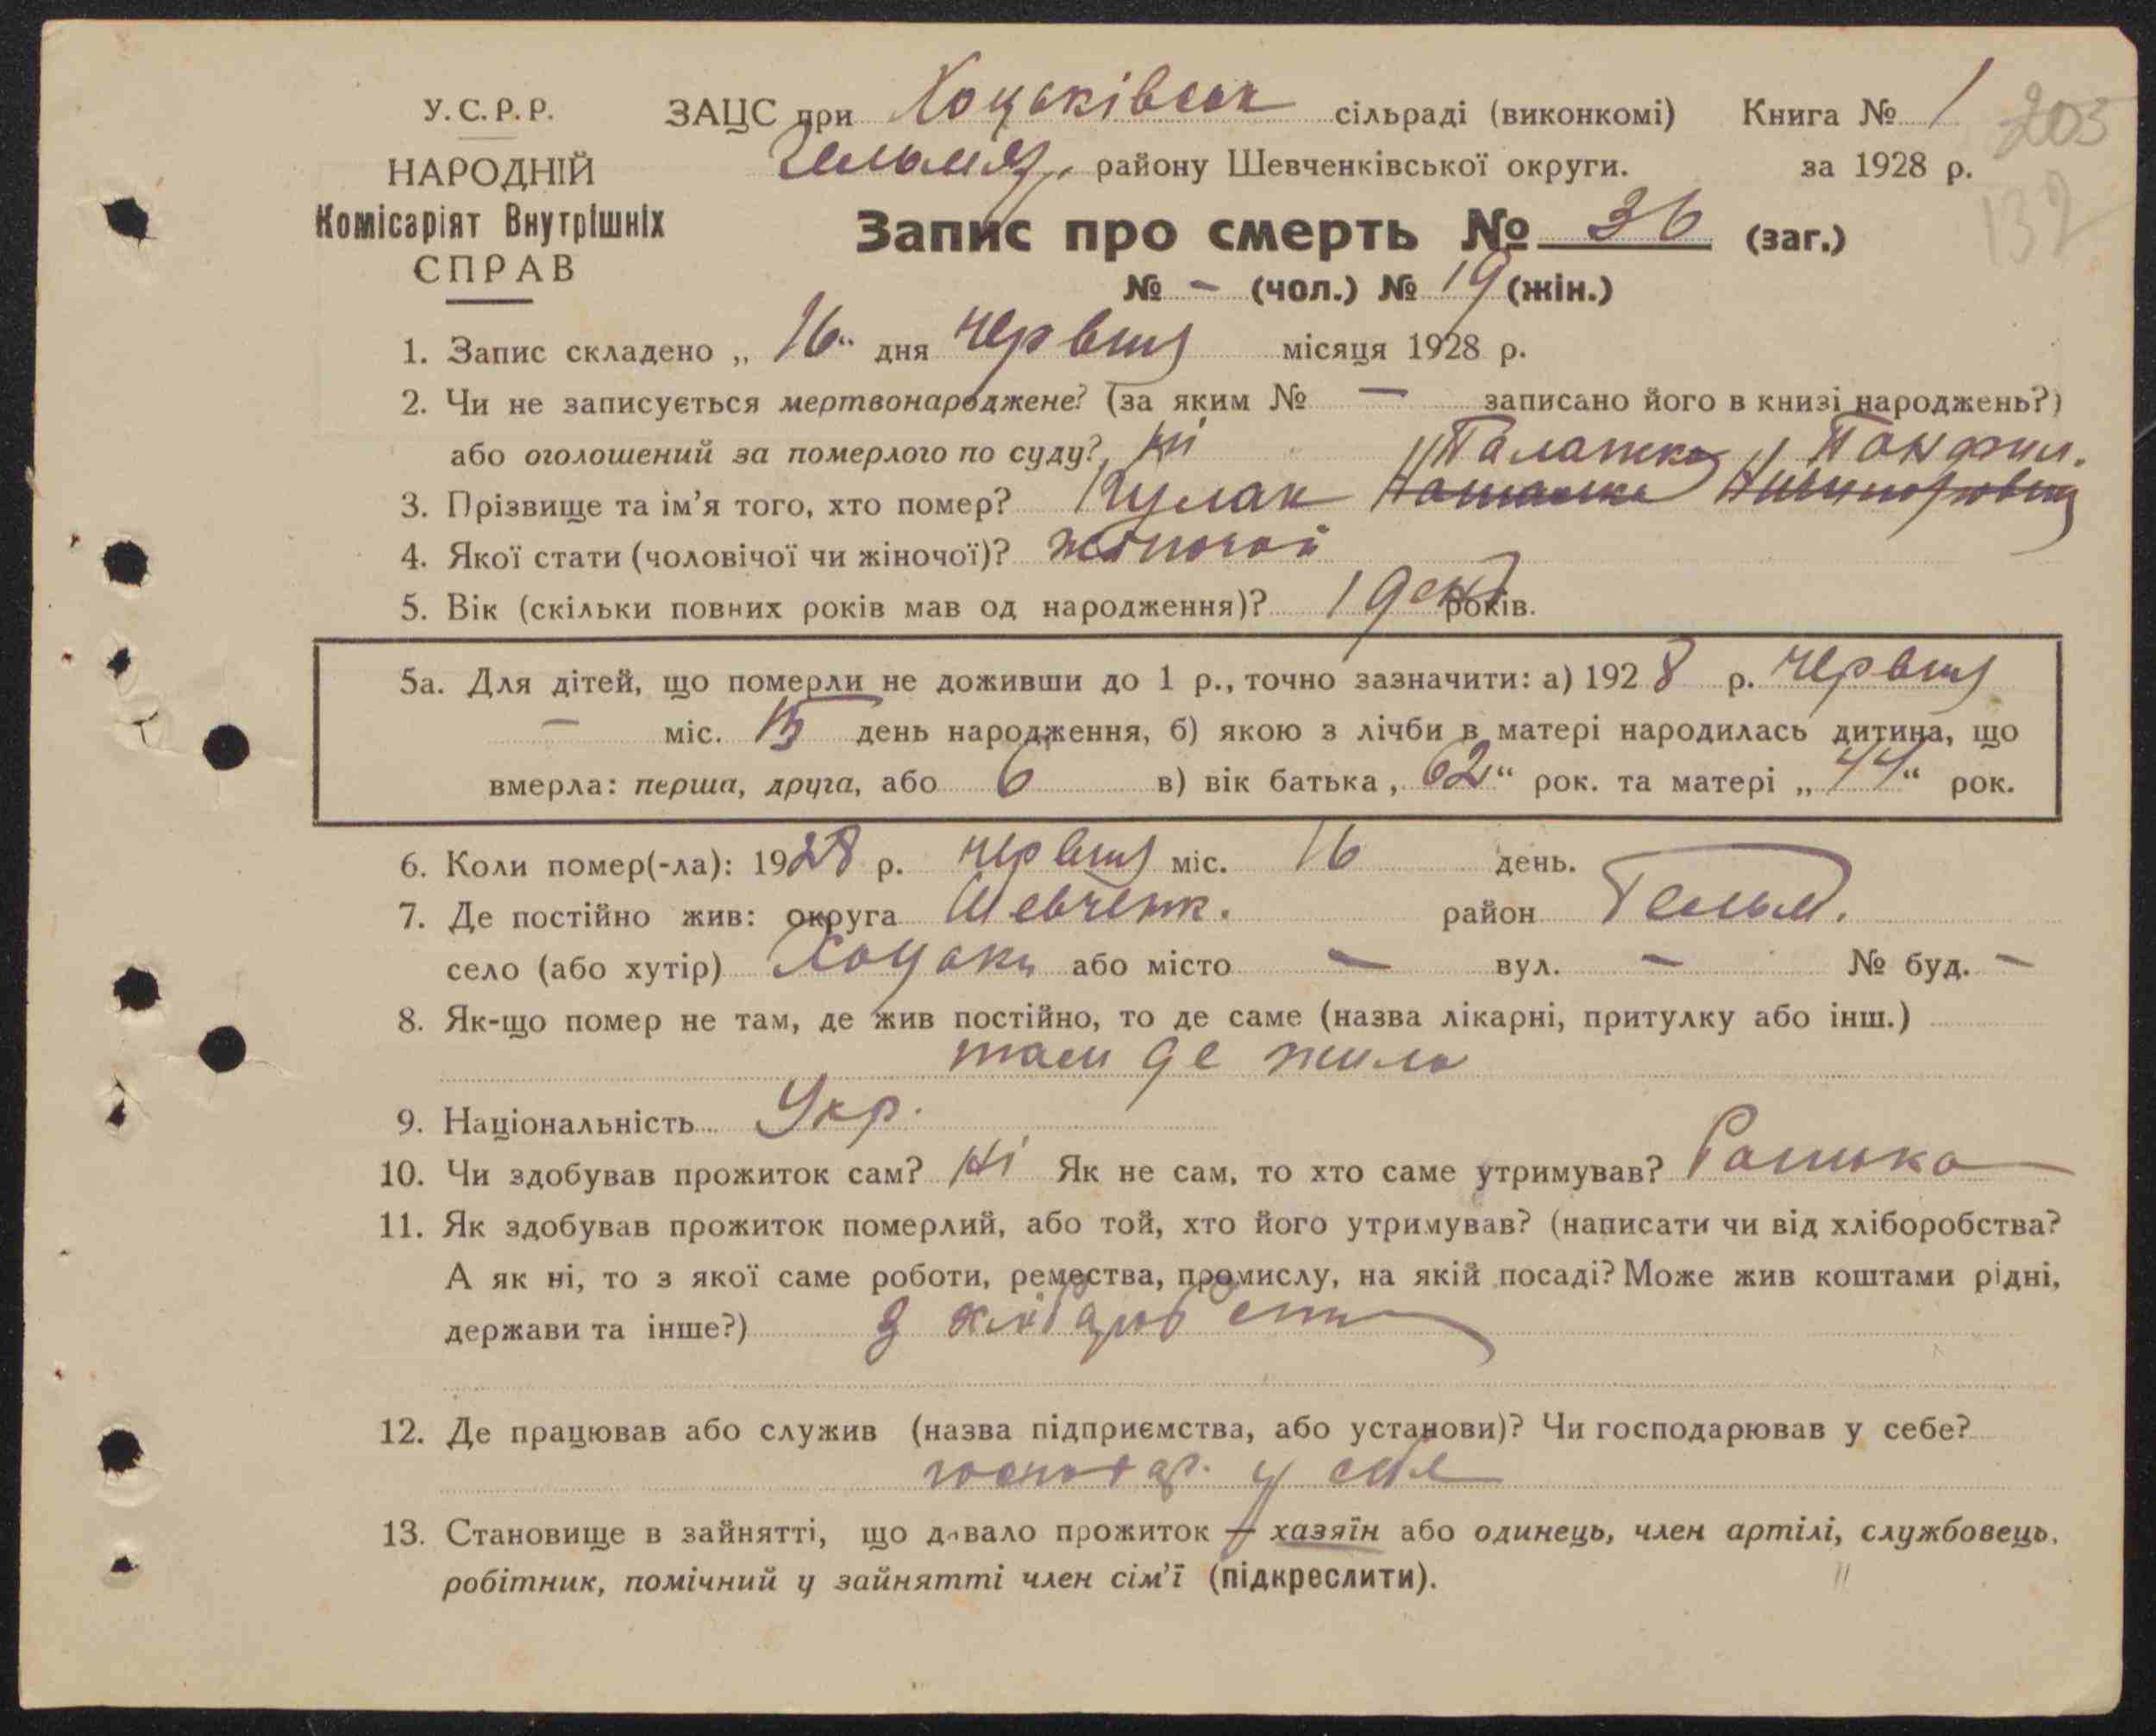 У.С.Р.Р.
НАРОДНІЙ
Комісаріят Внутрішніх
СПРАВ
ЗАЦС при Хоцьківськ сільраді (виконкомі) Книга № 1
205
Гельмяз. району Шевченківської округи. за 1928 р.
132
Запис про смерть № 36 (заг.)
№ - (чол.) № 19 (жін.)
1. Запис складено „ 16 “ дня червня місяця 1928 р.
2. Чи не записується мертвонароджене? (за яким № — записано його в книзі народжень?)
або оголошений за померлого по суду? ні
Палажка Панфил.
3. Прізвище та ім'я того, хто помер? Кулак
4. Якої стати (чоловічої чи жіночої)? жіночої
5. Вік (скільки повних років мав од народження)? 1 день років.
5а. Для дітей, що померли не доживши до 1 р., точно зазначити: а) 1928 р. червня
— міс. 15 день народження, б) якою з лічби в матері народилась дитина, що
вмерла: перша, друга, або 6 в) вік батька „ 62 “ рок. та матері „ 44 “ рок.
6. Коли помер(-ла): 1928 р. червня міс. 16 день.
7. Де постійно жив: округа Шевченк. район Гельм.
село (або хутір) Хоцьки або місто — вул. — № буд. —
8. Як-що помер не там, де жив постійно, то де саме (назва лікарні, притулку або інш.)
там де жила
9. Національність Укр.
10. Чи здобував прожиток сам? Ні Як не сам, то хто саме утримував?
11. Як здобував прожиток померлий, або той, хто його утримував? (написати чи від хліборобства?
А як ні, то з якої саме роботи, ремества, промислу, на якій посаді? Може жив коштами рідні,
держави та інше?) з хлібороб
12. Де працював або служив (назва підприємства, або установи)? Чи господарював у себе?
господар. у себе
13. Становище в зайнятті, що давало прожиток — хазяїн або одинець, член артілі, службовець,
робітник, помічний у зайнятті член сім'ї (підкреслити).